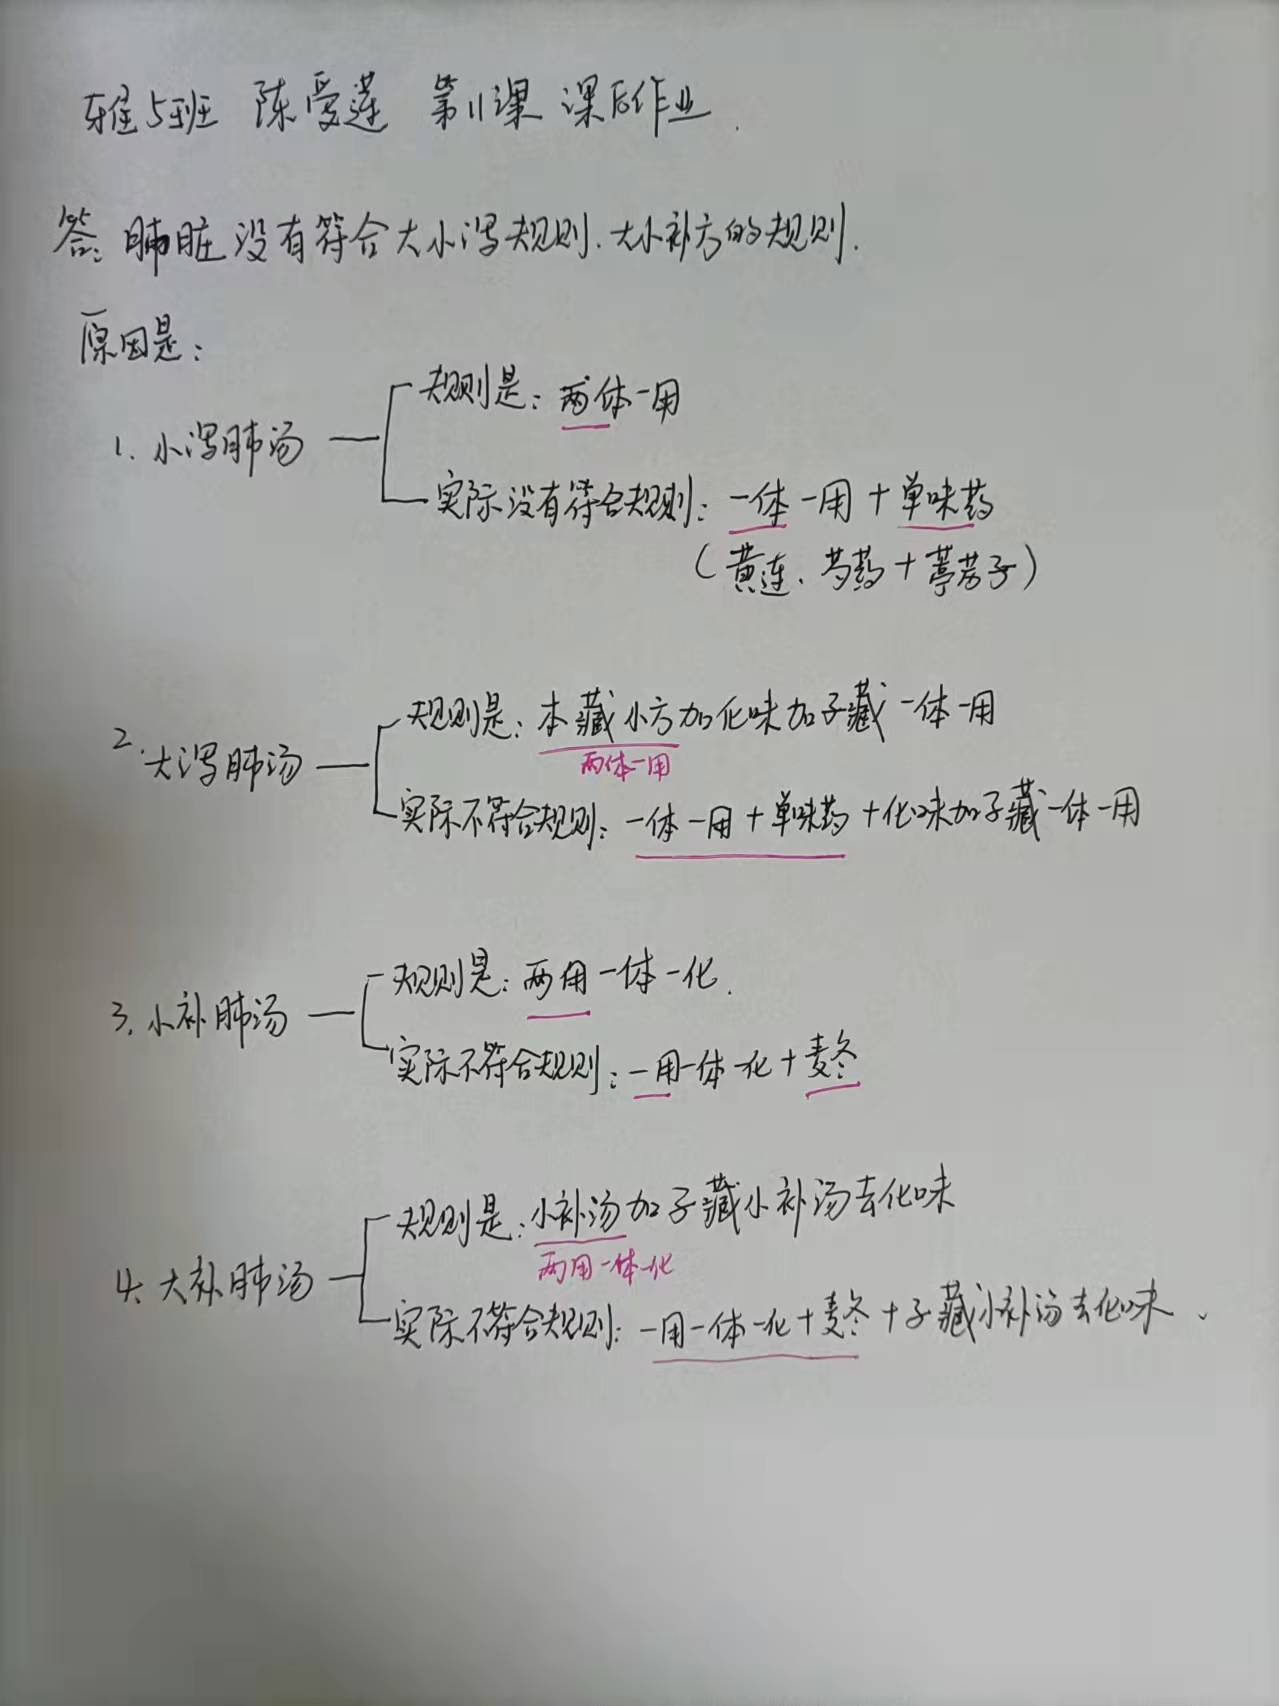 雅5班 陈受莲 第11课 课后作业.
答: 肺脏没有符合大小泻规则.大小补方的规则.
原因是:
规则是: 两体一用
1. 小泻肺汤
实际没有符合规则: 一体一用+单味药
(黄连、芍药+葶苈子)
规则是: 本藏小方加化味加子藏一体一用
两体一用
2. 大泻肺汤
实际不符合规则: 一体一用+单味药+化味加子藏一体一用
规则是: 两用一体一化.
3. 小补肺汤
实际不符合规则: 一用一体一化+麦冬
规则是: 小补汤加子藏小补汤去化味
两用一体一化
4. 大补肺汤
实际不符合规则: 一用一体一化+麦冬+子藏小补汤去化味.